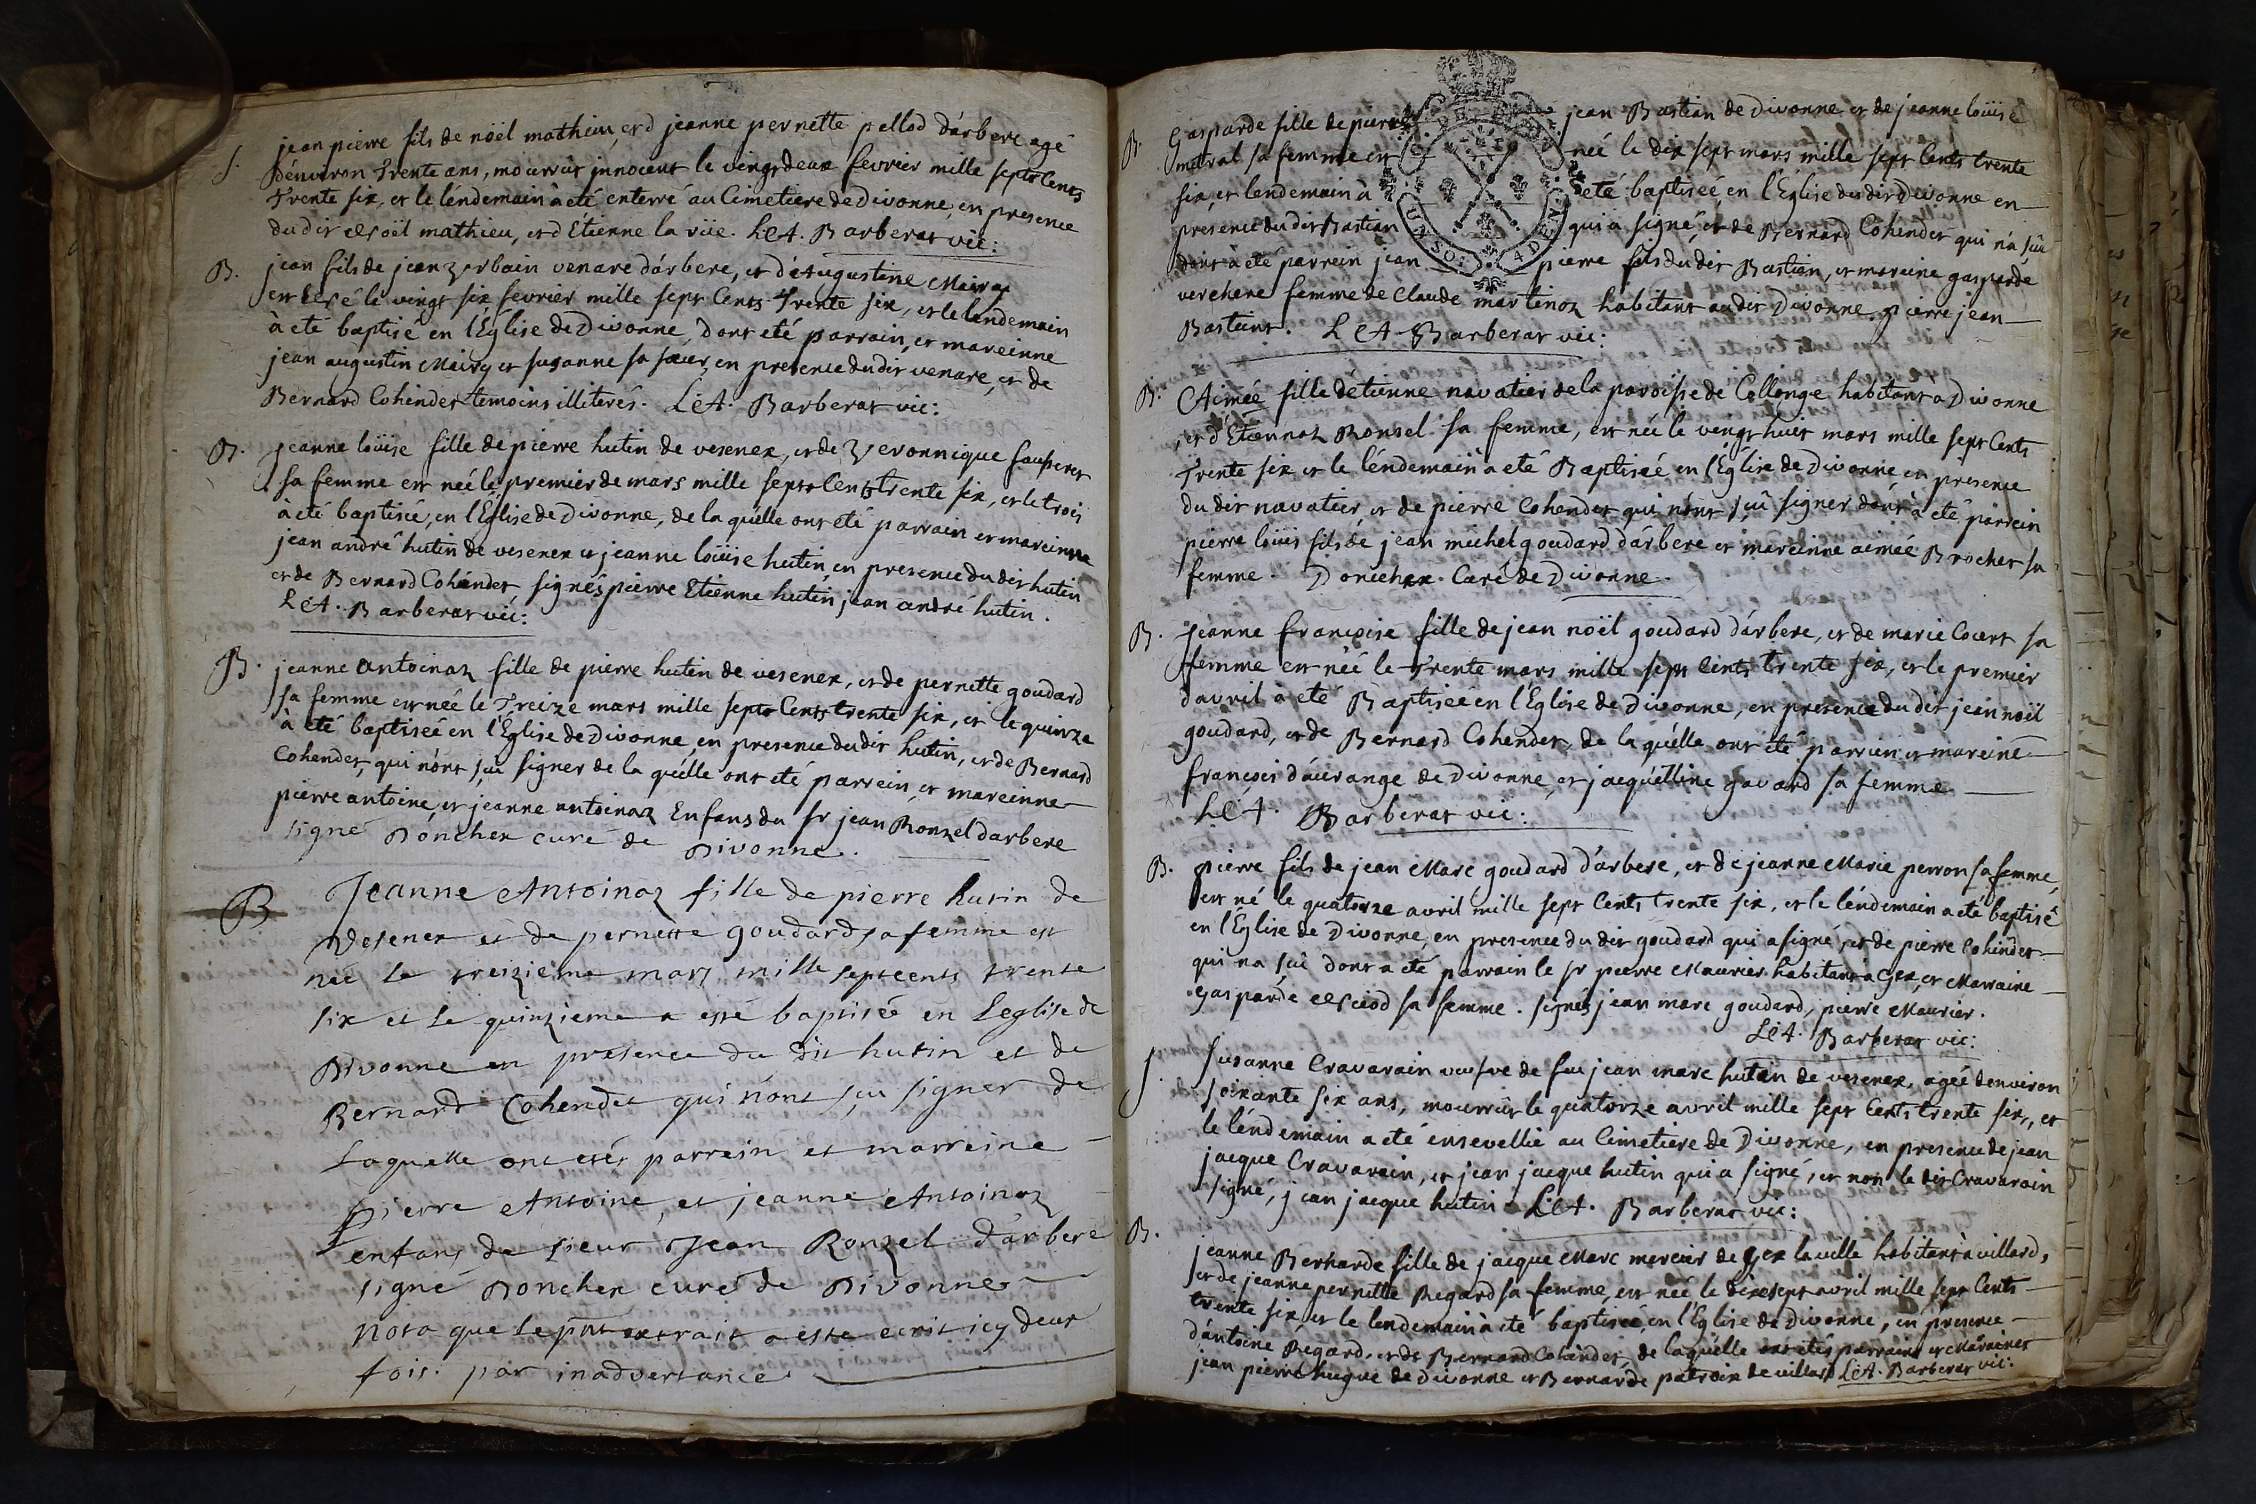 S. jean pierre fils de nöel mathieu, et d jeanne pernette pellod dárbere agé
dénviron trente ans, mourrût jnnocent le vingtdeux fevrier mille septs Cents
trente six, et le léndemain à été enterré au Cimetiere de Divonne, en presence
du dit Noël mathieu, et d Étienne la rüe. L.A. Barberat vic:
B. jean fils de jean Urbain venare dárbere, et d'Augustine Mairoz
est Né le vingt six fevrier mille sept Cents trente six, et le lendemain
à eté baptisé en l'Église de Divonne, dont eté parrain, et mareinne
jean augustin Mairoz et susanne sa sœur, en presence dudit venare, et de
Bernard Cohindet temoins illiterés. L.A. Barberat vic:
B. jeanne loüise fille de pierre hutin de vesenex, et de Veronnique
sa femme est née le premier de mars mille septs Cents trente six, et le trois
à eté baptisée, en l'Église de Divonne, de la quélle ont eté parrain et mareinne
jean andré hutin de vesenex et jeanne loüise hutin, en presence du dit hutin
et de Bernard Cohéndet, signés pierre Etienne hutin, jean andré hutin.
L.A. Barberat vic:
B. jeanne antoinaz fille de pierre hutin de vesenex, et de pernette goudard
sa femme est née le Treize mars mille septs Cents trente six, et le quinze
à été baptiseé en l'Eglise de Divonne en presence du dit hutin, et de Bernard
Cohendet, qui nónt sçu signer de la quélle ont eté parrein, et mareinne
pierre antoine, et jeanne antoinaz Enfans du sr jean Ronzel darbere
signé Dónchex curé de Divonne.
B Jeanne Antoinaz fille de pierre hutin de
Vesenex et de pernette goudard sa femme est
neé le treizieme mars mille septcents trente
six et le quinzieme a esté baptisée en Leglise de
Divonne en presence du dit hutin et de
Bernard Cohendet qui nónt sçu signer de
Laquelle ont etés parrein et marreine
Pierre Antoine, et jeanne Antoinaz
enfans du sieur Jean Ronzel dárbere
signé Donchex curé de Divonne
nota que le pnt extrait a este ecrit icy deux
fois. par inadvertance
B. Gasparde fille de pierre jean Bastian de Divonne et de jeanne loüise
maral sa femme est née le dix sept mars mille sept Cents trente
six, et lendemain à eté baptiseé, en l'Église du dit Divonne en
presence du dit Bastian qui a signé, et de Bernard Cohendet qui n'a sçû
dont à eté parrein jean pierre fils du dit Bastian, et mareine gasparde
verchere femme de Claude martinoz habitant audit Divonne. pierre jean
Bastient. L A Barberat vic:
B. Aimée fille détienne navatier de la paroisse de Collonge habitant a Divonne
et d'Etiennaz Ronsel sa femme, est née le vingt huit mars mille sept Cents
trente six et le léndemain a eté Baptiseé en l'Église de Divonne en presence
du dit navatier et de pierre Cohendet qui nónt sçû signer dont à eté parrein
pierre loüis fils de jean michel goudard dárbere et mareinne aimée Brochet sa
femme. Donchex. Curé de Divonne.
B. Jeanne françoise fille de jean noël goudard dárbere, et de marie Court sa
femme est née le trente mars mille sept Cents trente six, et le premier
d'avril à eté Baptiseé en l'Eglise de Divonne, en presence du dit jean noël
goudard, et de Bernard Cohendet, de la quélle ont eté parrien et mareine
françois daurange de Divonne, et jacquélline gavard sa femme
L.A. Barberat vic:
B. pierre fils de jean Marc goudard d'arbere, et de jeanne Marie perron sa femme,
est né le quatorze avril mille sept Cents trente six, et le léndemain a eté baptisé
en l'Église de Divonne, en presence du dit goudard qui a signé, et de pierre Cohindet
qui na sçû dont a eté parrain le sr pierre Maurier habitant à Gex, et Marraine
Gasparde Niod sa femme. signés jean marc goudard, pierre Maurier.
L.A. Barberat vic:
S. Susanne Cravarain veufve de feu jean marc hutin de vesenex, agée denviron
soixante six ans, mourrût le quatorze avril mille sept Cents trente six, et
le léndemain a eté ensevellie au Cimetiere de Divonne, en presence de jean
jacque Cravarain, et jean jacque hutin qui a signé, et non le dit Cravarain
signé, jean jacque hutin. L.A. Barberat vic:
B. jeanne Bernarde fille de jacque Marc mercier de Gex la ville habitant à villard,
et de jeanne pernette Regard sa femme, est née le dixsept avril mille sept Cents
trente six, et le lendemain a eté baptiseé, en l'Eglise de Divonne, en presence
dántoine Régard, et de Bernard Cohindet, de laquélle ont étés parrain et Maraines
jean pierre hugue de Divonne et Bernarde patroix de villard L.A. Barberat vic: